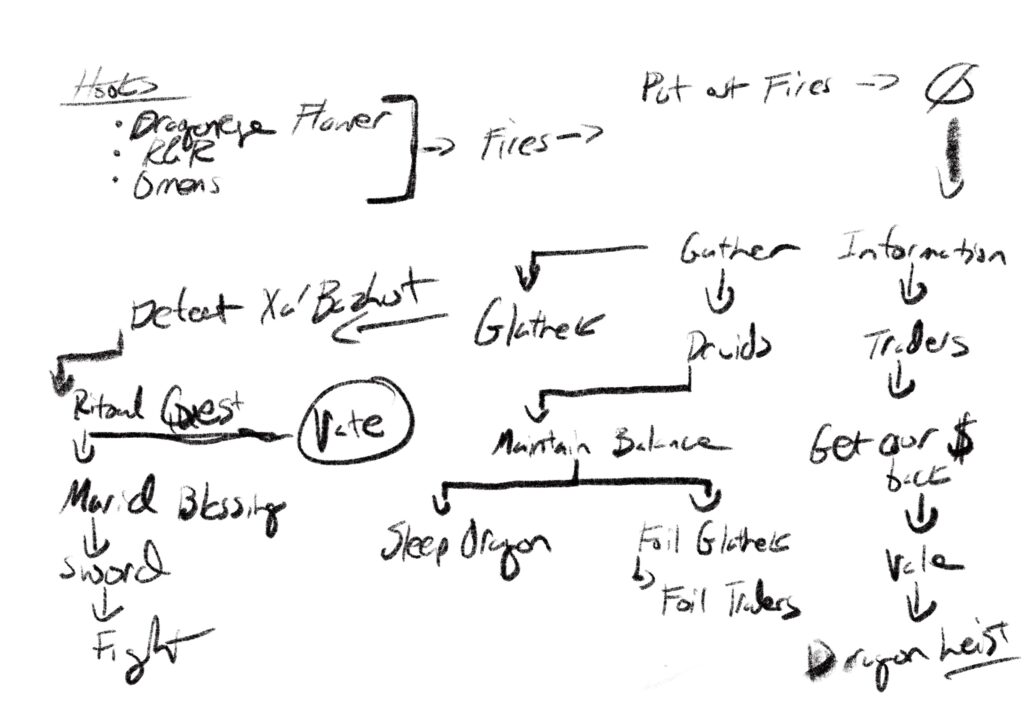 Hooks
• Dragoneye Flower
• R&R
• Omens
→ Fires →
Put out Fires → Ø
Gather Information
Defeat Xa'Bazhut
Glathek
Druids
Traders
Ritual Quest
Vale
Maintain Balance
Get our $
back
Marid Blessing
Sleep Dragon
Foil Glathek
Vale
Sword
Foil Traders
Fight
Dragon Heist